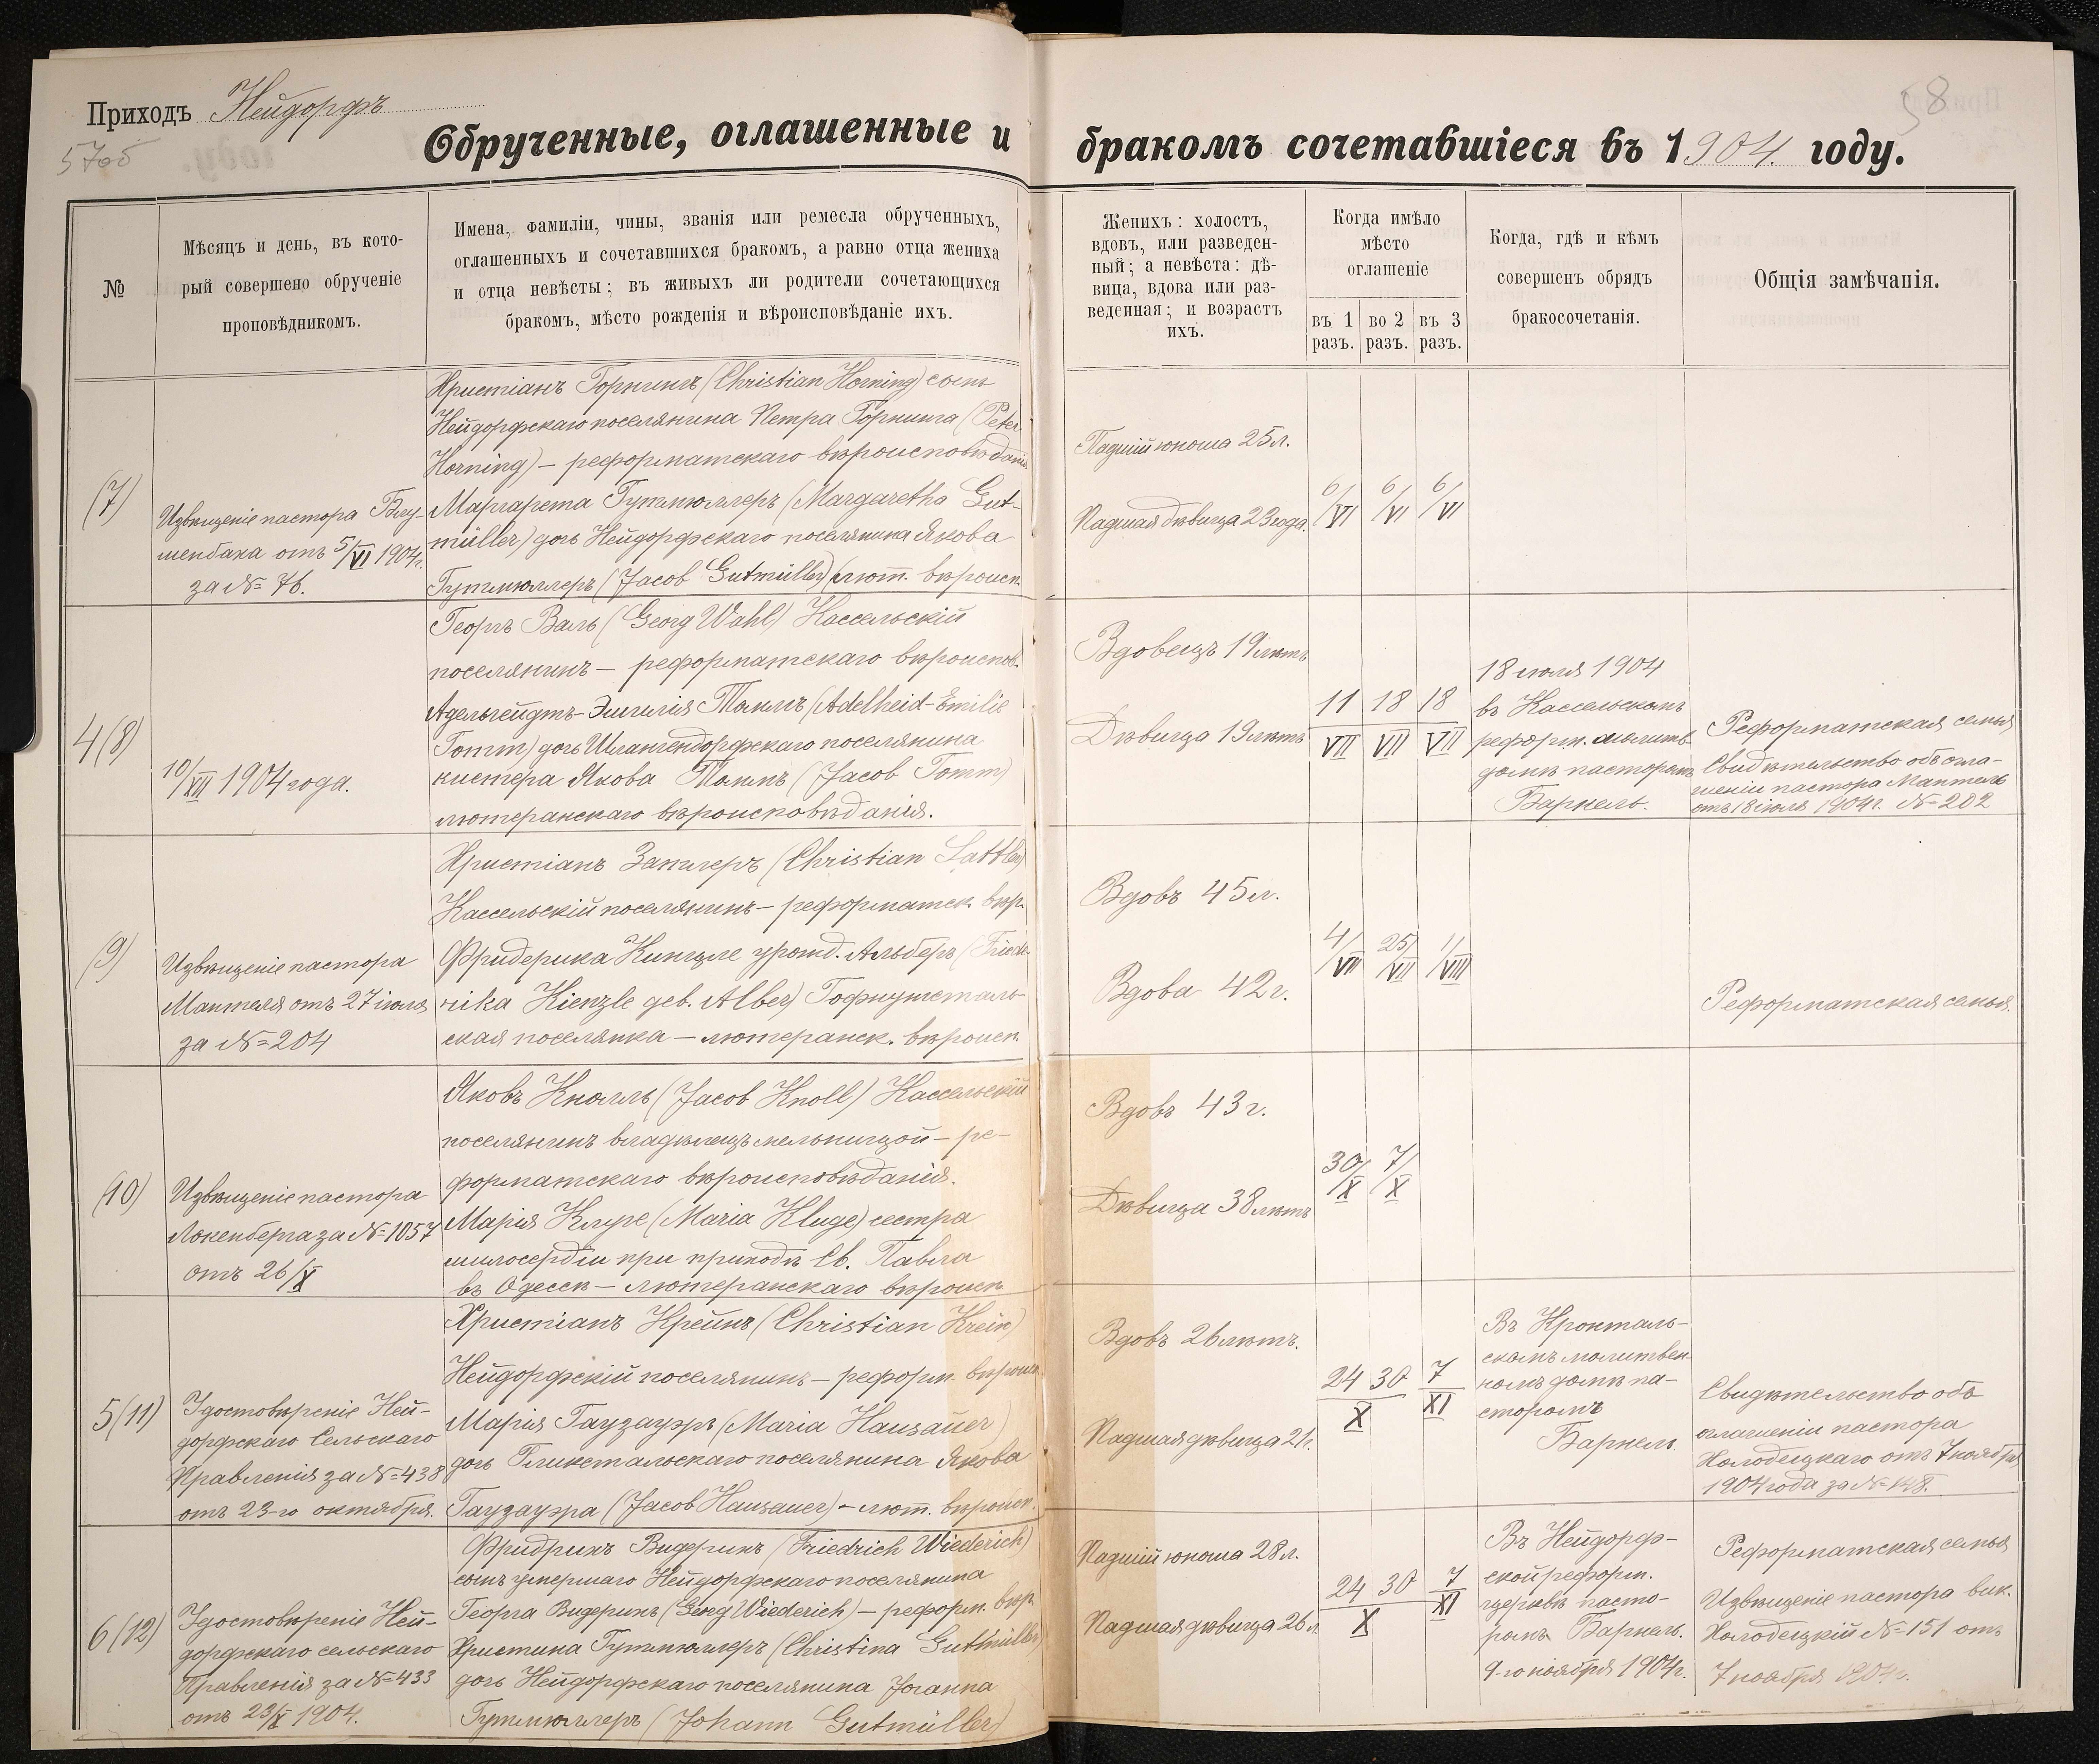 Приходъ Нейдорфъ
57об
58
Обрученные, оглашенные и бракомъ сочетавшіеся въ 1904. году.
№
Мѣсяцъ и день, въ кото-
рый совершено обрученіе
проповѣдникомъ.
Имена, фамиліи, чины, званія или ремесла обрученныхъ,
оглашенныхъ и сочетавшихся бракомъ, а равно отца жениха
и отца невѣсты; въ живыхъ ли родители сочетающихся
бракомъ, мѣсто рожденія и вѣроисповѣданіе ихъ.
Женихъ: холостъ,
вдовъ, или разведен-
ный; а невѣста: дѣ-
вица, вдова или раз-
веденная; и возрастъ
ихъ.
Когда имѣло
мѣсто
оглашеніе
въ 1 разъ.
во 2 разъ.
въ 3 разъ.
Когда, гдѣ и кѣмъ
совершенъ обрядъ
бракосочетанія.
Общія замѣчанія.
(7)
Извѣщеніе пастора Блу-
менбаха отъ 5/VI 1904г.
за № 76.
Христіанъ Горнингъ (Christian Horning) сынъ
Нейдорфскаго поселянина Петра Горнинга (Peter
Horning) – реформатскаго вѣроисповѣданія
Маргарета Гутмюллеръ (Margaretha Gut-
müller) дочь Нейдорфскаго поселянина Якова
Гутмюллеръ (Jacob Gutmüller) лют. вѣроисп.
Падшій юноша 25л.
Падшая дѣвица 23 года.
6/VI 6/VI 6/VI
4(8)
10/VII 1904 года.
Георгъ Валь (Georg Wahl) Кассельскій
поселянинъ – реформатскаго вѣроиспов.
Адельгейдтъ-Эмилія Томмъ (Adelheid-Emilie
Tomm) дочь Шлангендорфскаго поселянина
кистера Якова Томмъ (Jacob Tomm)
лютеранскаго вѣроисповѣданія.
Вдовецъ 19 лѣтъ
Дѣвица 19 лѣтъ
11/VII 18/VII 18/VII
18 іюля 1904
въ Кассельскомъ
реформ. молитв.
домѣ пасторомъ
Барнель.
Реформатская семья
Свидѣтельство объ огла-
шеніи пастора Мантель
отъ 18 іюля 1904г. № 202
(9)
Извѣщеніе пастора
Мантеля отъ 27 іюля
за № 204
Христіанъ Затлеръ (Christian Sattler)
Кассельскій поселянинъ – реформатск. вѣр.
Фридерика Кинцле урожд. Альберъ (Friede-
rika Kienzle geb. Alber) Гофнунгсталь-
ская поселянка – лютеранск. вѣроисп.
Вдовъ 45л.
Вдова 42г.
4/VII 25/VII 1/VIII
Реформатская семья.
(10)
Извѣщеніе пастора
за № 1057
отъ 26/X
Яковъ Кнолль (Jacob Knoll) Кассельскій
поселянинъ владѣлецъ мельницой – ре-
форматскаго вѣроисповѣданія.
Марія Клуге (Maria Kluge) сестра
милосердіи при приходѣ Св. Павла
въ Одессѣ – лютеранскаго вѣроисп.
Вдовъ 43г.
Дѣвица 38 лѣтъ
30/X 7/X
5(11)
Удостовѣреніе Ней-
дорфскаго Сельскаго
Правленія за № 438
отъ 23-го октября.
Христіанъ Крейнъ (Christian Krein)
Нейдорфскій поселянинъ – реформ. вѣроисп.
Марія Гаузауэръ (Maria Hausauer)
дочь Глюкстальскаго поселянина Якова
Гаузауэра (Jacob Hausauer) – лют. вѣроисп.
Вдовъ 26 лѣтъ.
Падшая дѣвица 21г.
24 30/X 7/XI
Въ Кронталь-
скомъ молитвен-
номъ домѣ па-
сторомъ
Барнель.
Свидѣтельство объ
оглашеніи пастора
Холодецкаго отъ 7 ноября
1904 года за № 148.
6(12)
Удостовѣреніе Ней-
дорфскаго сельскаго
Правленія за № 433
отъ 23/X 1904.
Фридрихъ Видерихъ (Friedrich Wiederich)
сынъ умершаго Нейдорфскаго поселянина
Георга Видерихъ (Georg Wiederich) – реформ. вѣр.
Христина Гутмюллеръ (Christina Gutmüller)
дочь Нейдорфскаго поселянина Іоганна
Гутмюллеръ (Johann Gutmüller)
Падшій юноша 28л.
Падшая дѣвица 26 л.
24 30/X 7/XI
Въ Нейдорф-
ской реформ.
церквѣ пасто-
ромъ Барнель.
9-го ноября 1904г.
Реформатская семья
Извѣщеніе пастора вик.
Холодецкій № 151 отъ
7 ноября 1904г.